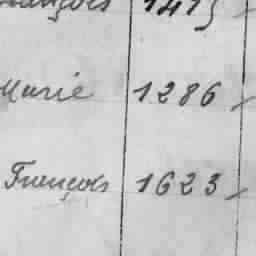 François 1415
Marie 1286
François 1623